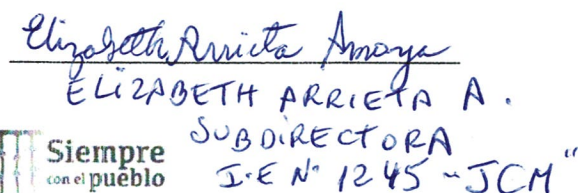 Elizabeth Arrieta Amaya
ELIZABETH ARRIETA A.
SUBDIRECTORA
I.E N° 1245 - JCM"
Siempre
con el pueblo